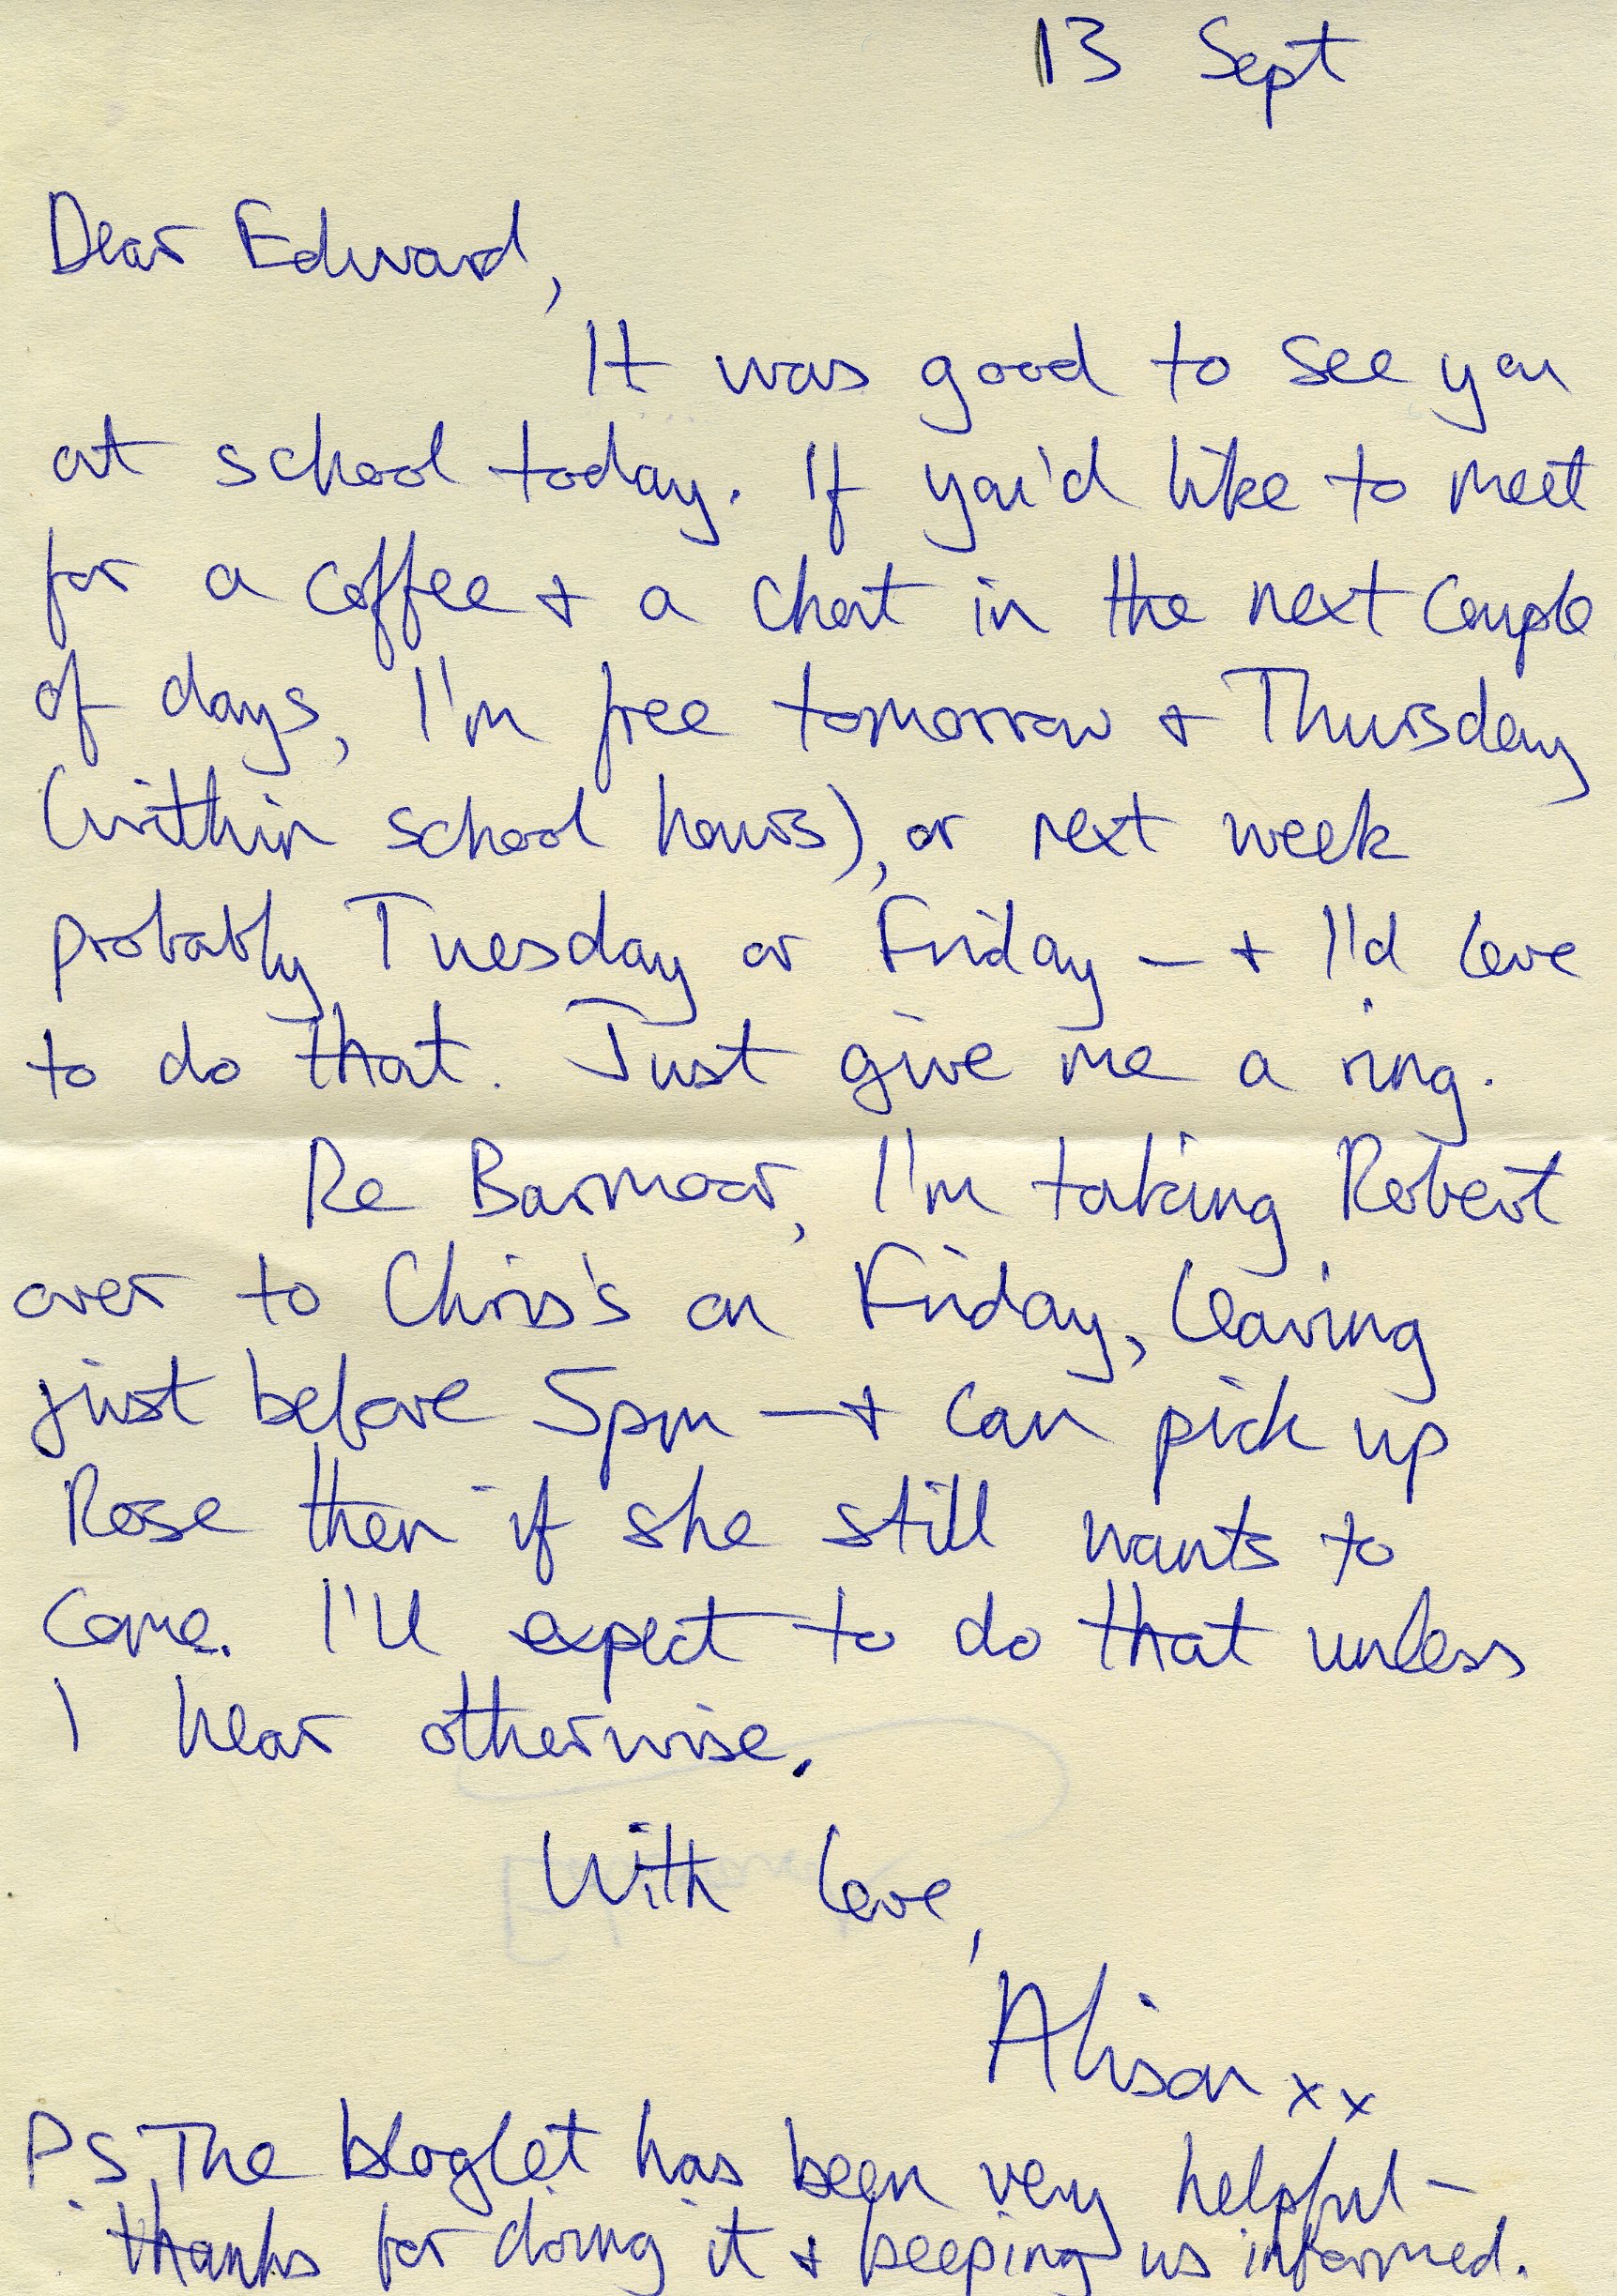 13 Sept
Dear Edward,
It was good to see you
at school today. If you'd like to meet
for a coffee + a chat in the next couple
of days, I'm free tomorrow + Thursday
(within school hours), or next week
probably Tuesday or Friday – + I'd love
to do that. Just give me a ring.
Re Barmoor, I'm taking Robert
over to Chris's on Friday, leaving
just before 5pm – + can pick up
Rose then if she still wants to
come. I'll expect to do that unless
I hear otherwise.
With love,
Alison xx
PS. The bloglet has been very helpful –
thanks for doing it + keeping us informed.